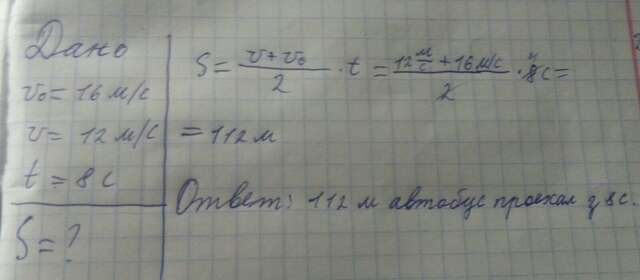 Дано
v₀ = 16 м/с
v = 12 м/с
t = 8 с
S = ?
S = (v + v₀)/2 · t = (12 м/с + 16 м/с)/2 · 8 с =
= 112 м
Ответ: 112 м автобус проехал за 8 с.